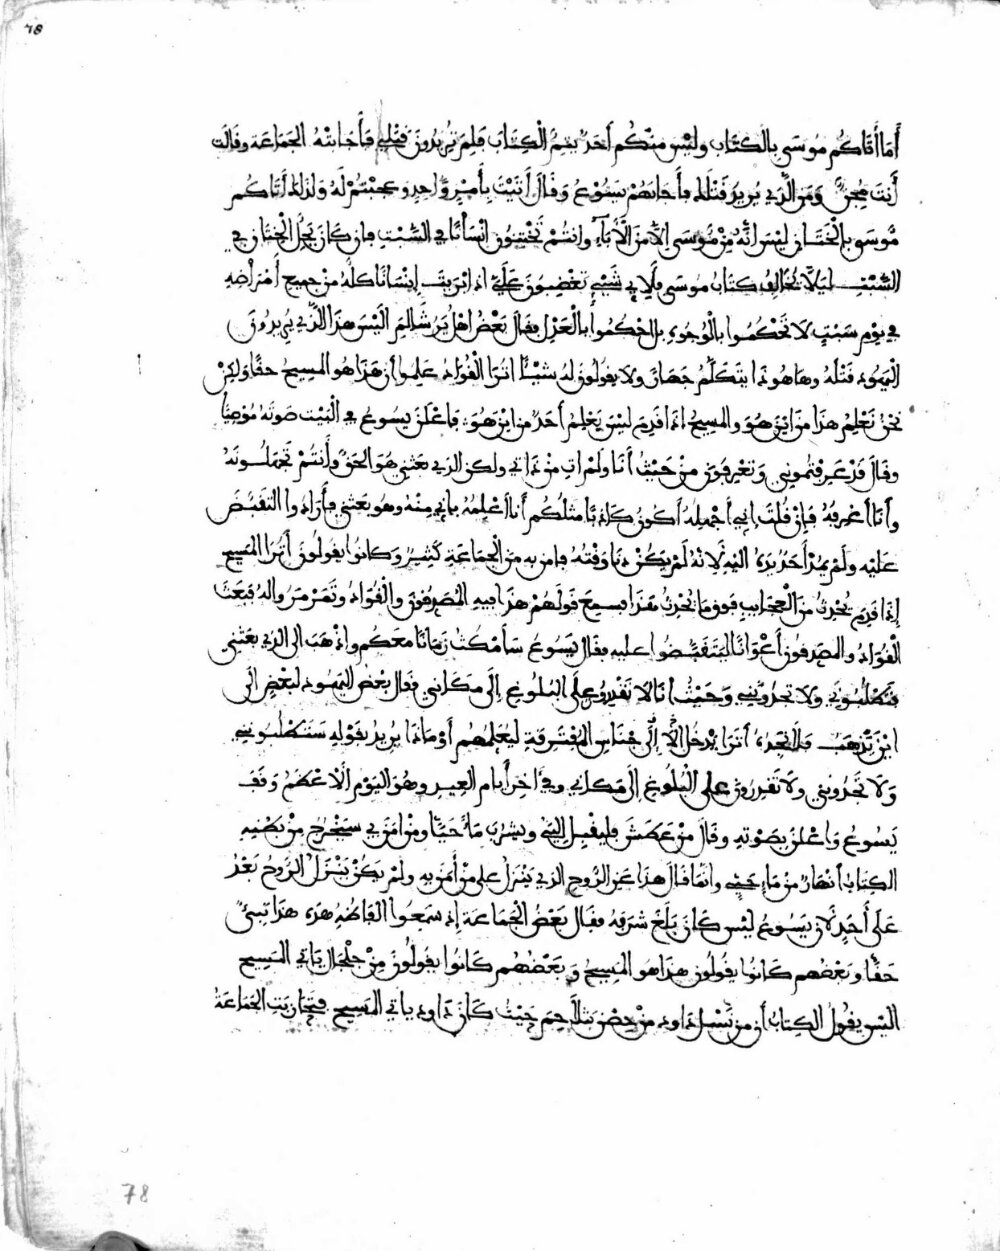 78
أما أتاكم موسى بالكتاب وليس منكم أحد يتم الكتاب فلم تريدون قتلي فأجابته الجماعة وقالت
أنت مجن ومن الذي يريد قتلك فأجابهم يسوع وقال أتيت بأمر واحد وعجبتم له ولذلك أتاكم
موسى بالختان ليس أنه من موسى إلا من الأباء وانتم تختنون انسانا في السبت فإن كان يحل الختان في
السبت ليلا تخالف كتاب موسى فلاي شيء تغضبون علي اذ ابريت إنسانا كله من جميع أمراضه
في يوم سبت لا تحكموا بالوجوه بل احكموا بالعدل فقال بعض اهل يرشالم اليس هذا الذي يريدون
اليهود قتله وها هوذا يتكلم جهارا ولا يقولون له شيئا اترا القواد علموا أن هذا هو المسيح حقا ولكن
نحن نعلم هذا من اين هو والمسيح اذا قدم ليس يعلم أحد من اين هو فاعلن يسوع في البيت صوته موصيا
وقال قد عرفتموني وتعرفون من حيث أنا ولم ات من ذاتي ولكن الذي بعثني هو الحق وأنتم تجهلونه
وأنا أعرفه فإن قلت إني أجهله أكون كاذبا مثلكم أنا أعلمه بأني منه وهو بعثني فأرادوا التقبض
عليه ولم يمد أحد يده اليه لانه لم يكن دنا وقته فامن به من الجماعة كثير وكانوا يقولون أترا المسيح
إذا قدم يحدث من العجايب فوق ما يحدث هذا فسمع قولهم هذا فيه المصدقون والقواد وتمرمروا له فبعث
القواد والمصدقون أعوانا ليتقبضوا عليه فقال يسوع سأمكث زمانا معكم واذهب الى الذي بعثني
فتطلبوني ولا تجدوني وحيث أنا لا تقدرون على البلوغ إلى مكاني فقال بعض اليهود لبعض الى
اين يذهب فلا نجده أترا يدخل إلى أجناس المفترقة ليعلمهم أو ماذا يريد بقوله ستطلبوني
ولا تجدوني ولا تقدرون على البلوغ إلى مكاني وفي اخر أيام العيد وهو اليوم الأعظم وقف
يسوع وأعلن بصوته وقال من عطش فليقبل إلي ويشرب ماء حيا ومن امن بي ستخرج من بطنه
الكتاب أنهار من ماء حي وانما قال هذا عن الروح الذي ينزل على من أمن به ولم يكن ينزل الروح بعد
على أحد لان يسوع ليس كان بلغ شرفه فقال بعض الجماعة إذ سمعوا الفاظه هذه هذا نبي
حقا وبعضهم كانوا يقولون هذا هو المسيح وبعضهم كانوا يقولون من جلجال ياتي المسيح
اليس يقول الكتاب أن من نسل داود من حصن بثلاحم حيث كان داود ياتي المسيح فتحاربت الجماعة
78